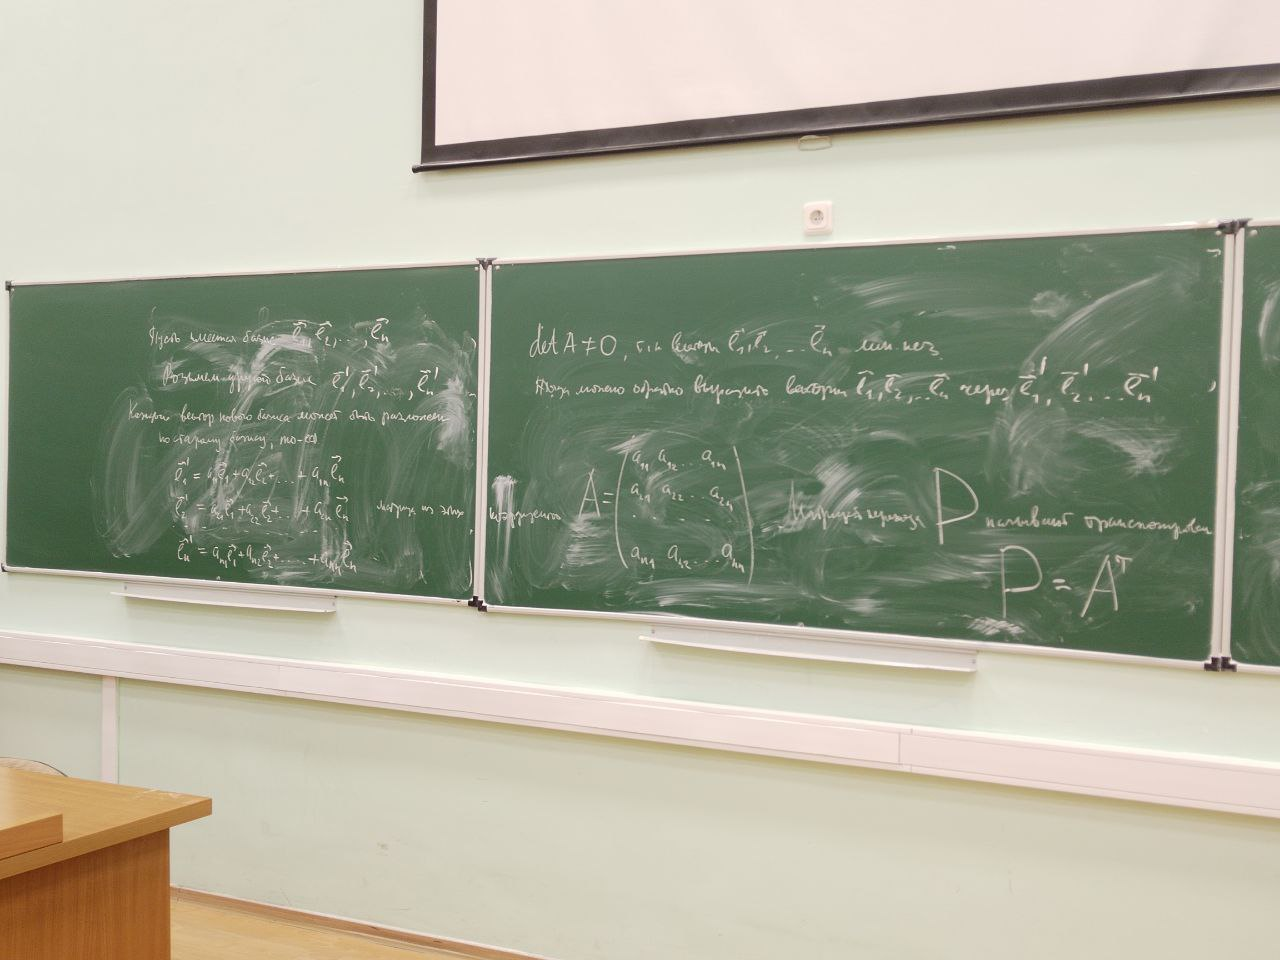 Пусть имеется базис e⃗₁, e⃗₂, ..., e⃗ₙ
Возьмем другой базис e⃗₁', e⃗₂', ..., e⃗ₙ'
Каждый вектор нового базиса может быть разложен
по старому базису, то-есть
e⃗₁' = a₁₁e⃗₁ + a₁₂e⃗₂ + ... + a₁ₙe⃗ₙ
e⃗₂' = a₂₁e⃗₁ + a₂₂e⃗₂ + ... + a₂ₙe⃗ₙ матрица из этих
. . . . . .
e⃗ₙ' = aₙ₁e⃗₁ + aₙ₂e⃗₂ + .... + aₙₙe⃗ₙ
det A ≠ 0, т.к вектора e⃗₁, e⃗₂, ... e⃗ₙ лин. нез.
можно обратно выразить вектора e⃗₁, e⃗₂, ... e⃗ₙ через e⃗₁', e⃗₂', ... e⃗ₙ'
a₁₁ a₁₂ ... a₁ₙ
коэффициентов A = a₂₁ a₂₂ ... a₂ₙ Матрицей перехода P называют транспонирован
aₙ₁ aₙ₂ ... aₙₙ
P = Aᵀ